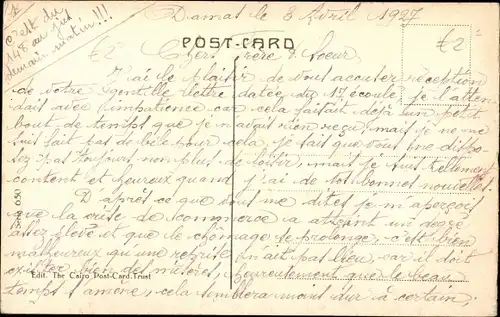 Damas le 3 Avril 1927
C'est du
148 au jus
demain matin!!!
£2
POST-CARD
£2
Chers Frère & Soeur,
J'ai le plaisir de vous accuser réception
de votre gentille lettre datée du 17 écoulé, je l'atten
dait avec impatience car cela faisait déjà un petit
bout de temps que je n'avait rien reçu, mais je ne me
suit fait pas de bile pour cela, je sait que vous ne dispo-
sez pas toujours non plus de loisir, mais je suis tellement
content et heureux quand j'ai de tes bonnes nouvelles.
D'après ce que vous me dites je m'aperçois
que la crise de commerce a atteint un degré
assez élevé et que le chômage se prolonge, c'est bien
malheureux qu'une retraite n'ait pas lieu, car il doit
exister de misères, heureusement que le beau
temps s'amène, cela semblera moins dur à certain;
Edit. The Cairo Post-Card Trust